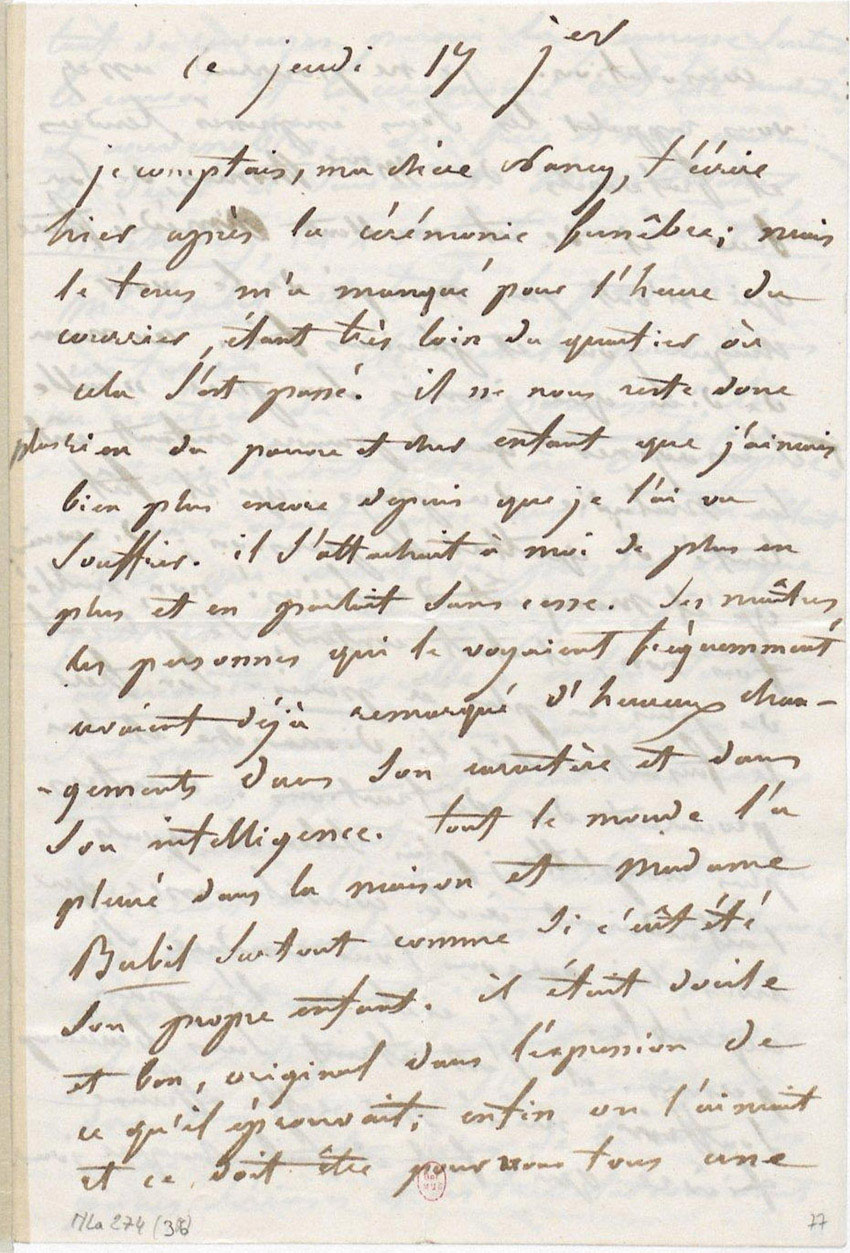 ce jeudi 17 jer
je comptais, ma chère Nancy, t'écrire
hier après la cérémonie funèbre; mais
le tems m'a manqué pour l'heure du
courrier, étant très loin du quartier où
cela s'est passé. il ne nous reste donc
plus rien du pauvre et cher enfant que j'aimais
bien plus encore depuis que je l'ai vu
souffrir. il s'attachait à moi de plus en
plus et en parlait sans cesse. Ses maîtres
les personnes qui le voyaient fréquemment
avaient déjà remarqué d'heureux chan-
-gements dans son caractère et dans
son intelligence. tout le monde l'a
pleuré dans la maison et Madame
Babil surtout comme si c'eût été
son propre enfant. il était docile
et bon, original dans l'expression de
ce qu'il éprouvait; enfin on l'aimait
et ce doit être pour vous tous une
MLa 274 (36)
77